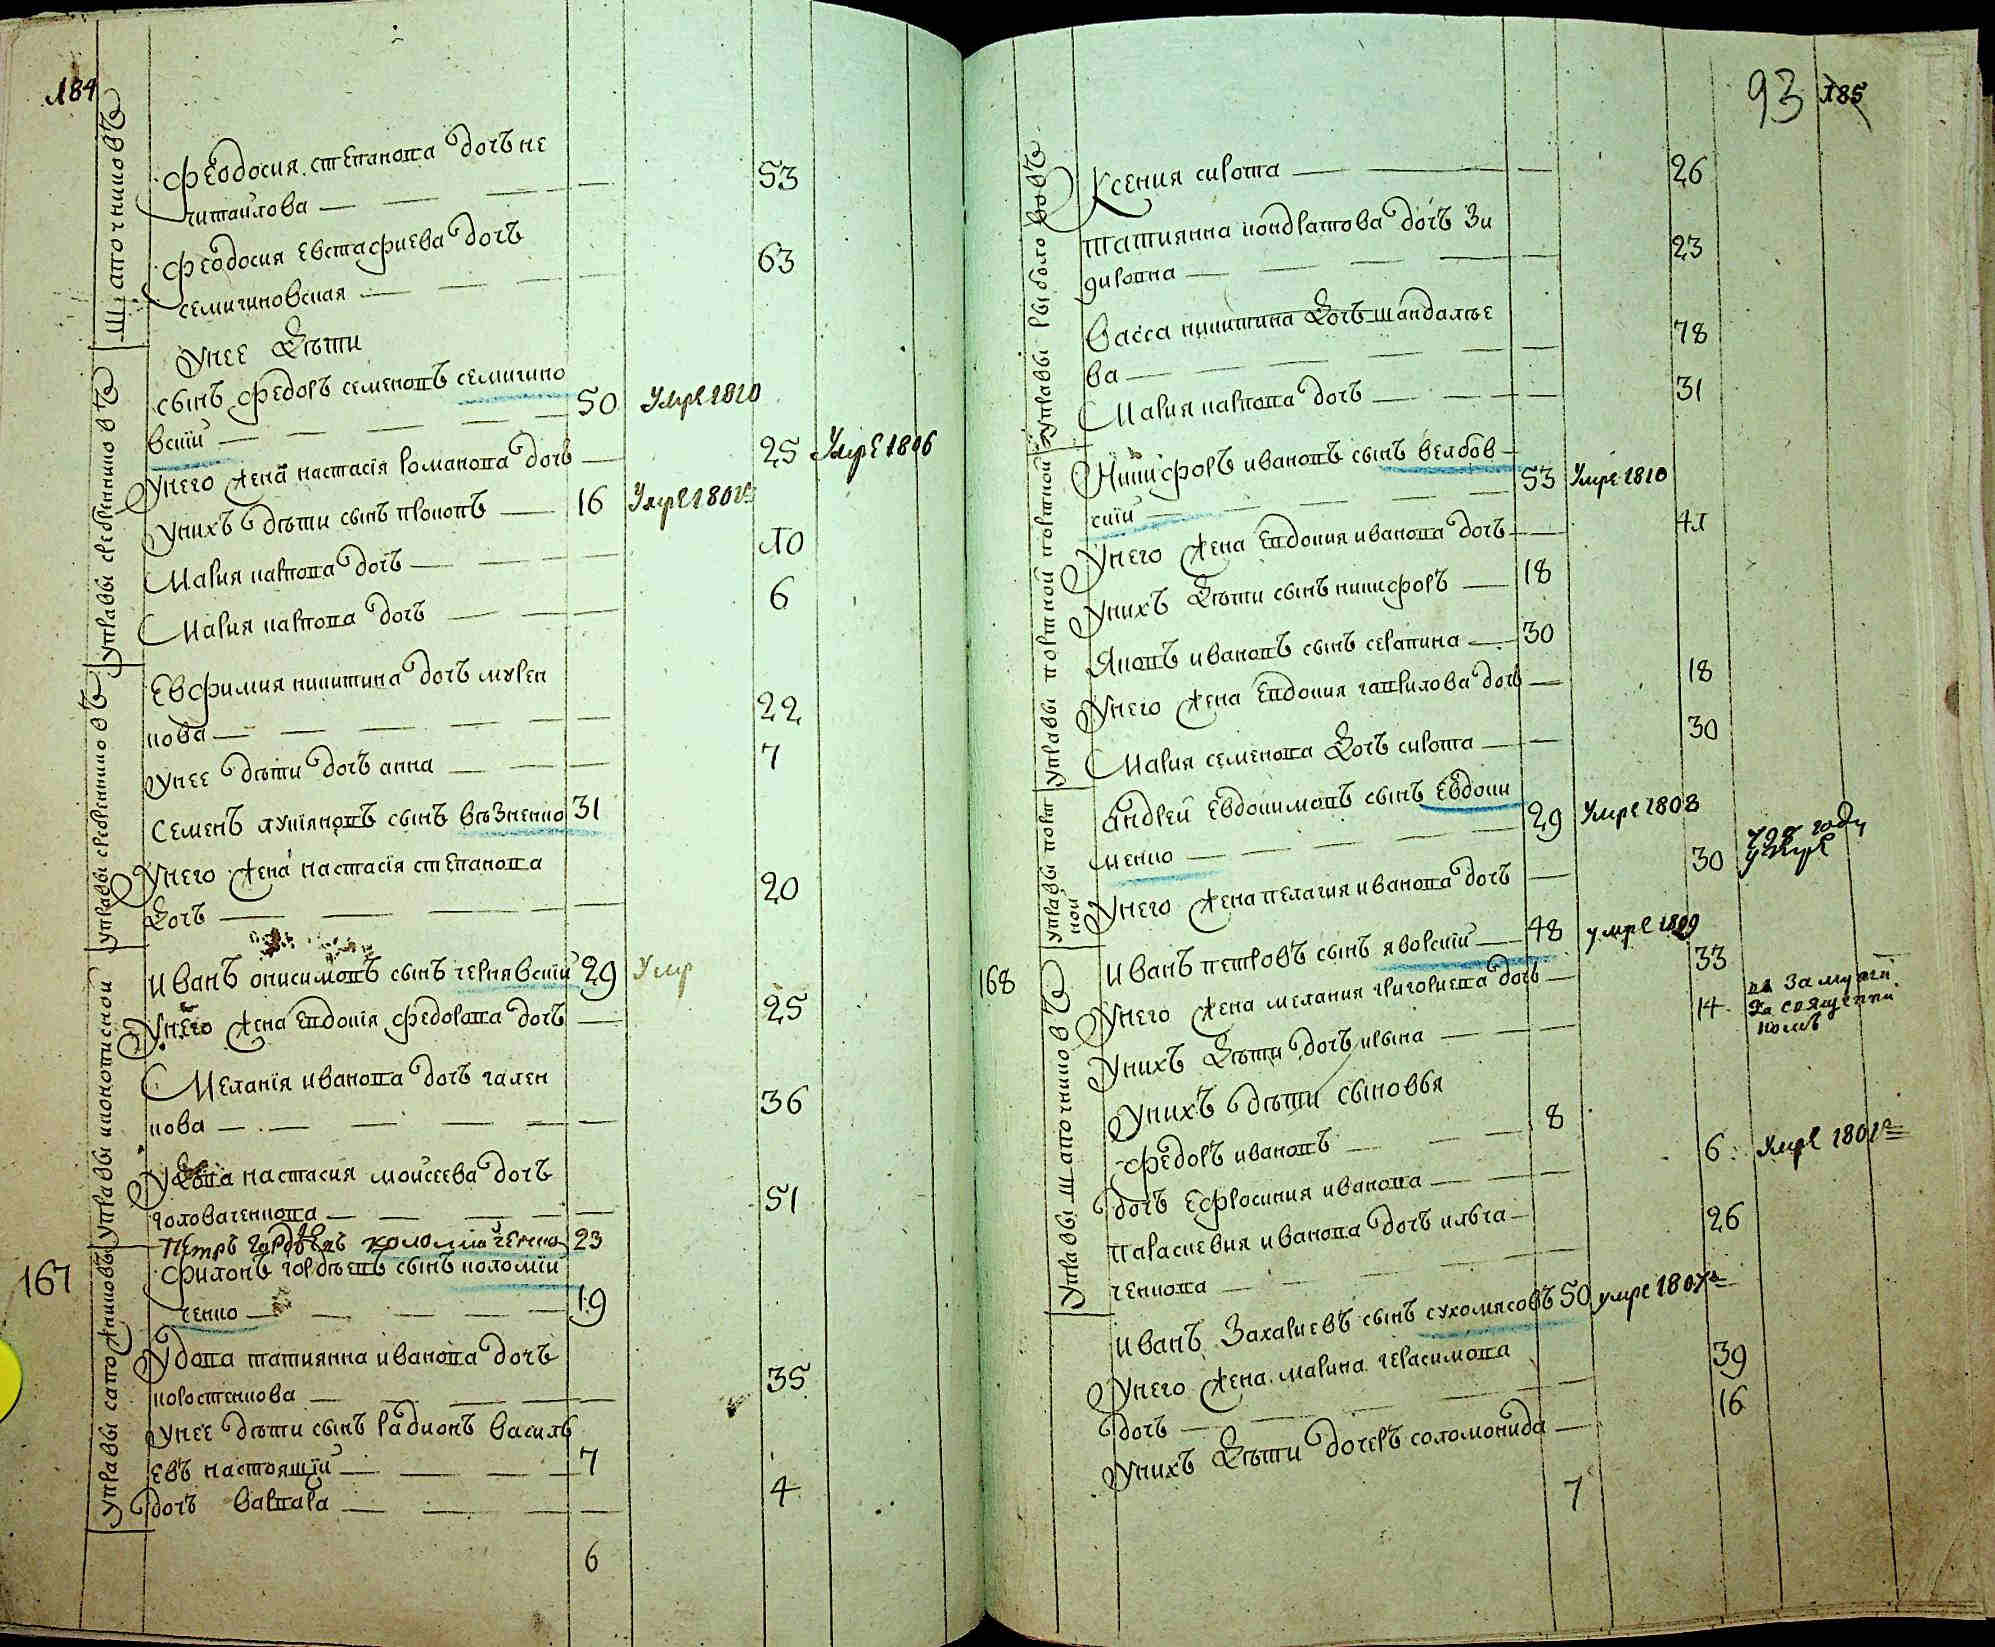 184
Шапочниовъ
Феодосия степанова дочь не
читайлова
53
Феодосия Евстафиева дочь
семигиновская
63
У нее дѣти
Управы сребреннико въ
сынъ федоръ семеновъ семигино
вский
50
Умре 1810
У него жена настасія романова дочь
25
Умре 1806
У нихъ дѣти сынъ прокопъ
16
Мария карпова дочь
10
Мария карпова дочь
6
Управы сребреннико въ
Евфимия никитина дочь мурен
кова
22
У нее дѣти дочь анна
7
Семенъ лукіяновъ сынъ
31
У него жена настасія степанова
дочь
20
Управы иконописной
Иванъ онисимовъ сынъ чернявский
29
Умр
У него жена евдокія федорова дочь
25
Меланія иванова дочь гален
кова
36
Удова настасия моисеева дочь
головаченкова
51
Петръ коломийченко
23
167
Управы сапожниковъ
Филонъ гордѣевъ сынъ коломий
ченко
19
Удова татиянна иванова дочь
коростенкова
35
У нее дѣти сынъ радионъ василь
евъ настоящий
7
дочь варвара
4
6
93
185
Управы рыболововъ
Ксения сирота
26
Татиянна кондратова дочь
23
Васса никитина дочь шандалѣе
ва
78
Мария карпова дочь
31
Управы портной
Никифоръ ивановъ сынъ велбов
ский
53
Умре 1810
У него жена евдокия иванова дочь
41
У нихъ дѣти сынъ никифоръ
18
Яковъ ивановъ сынъ серапина
30
У него жена евдокия гаврилова дочь
18
Мария семенова дочь сирота
30
Управы порт
ной
Андрей евдокимовъ сынъ Евдоки
менко
29
Умре 1808
У него жена пелагия иванова дочь
30
году
умре
168
Управы шапочнико въ
Иванъ петровъ сынъ яворский
48
умре 1809
У него жена мелания григориева дочь
33
У нихъ дѣти дочь ирина
14
въ замужи
за священни
комъ
У нихъ дѣти сыновья
федоръ ивановъ
8
дочь Ефросиния иванова
6
Умре 1801
Параскевия иванова дочь ильча
ченкова
26
Иванъ Захариевъ сынъ сухомясовъ
50
умре 1807
У него жена марина герасимова
дочь
39
У нихъ дѣти дочерь соломонида
16
7